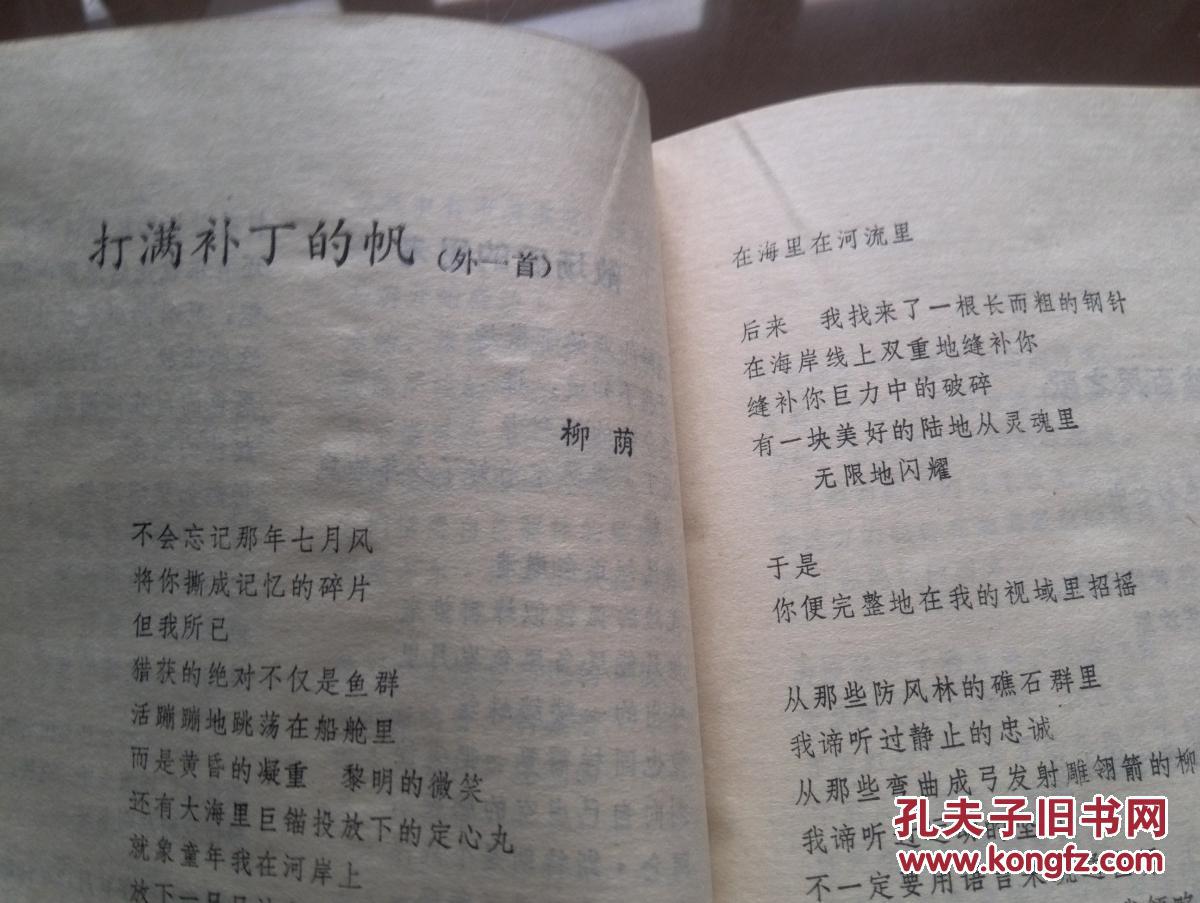 打满补丁的帆（外一首）
柳荫
不会忘记那年七月风
将你撕成记忆的碎片
但我所已
猎获的绝对不仅是鱼群
活蹦蹦地跳荡在船舱里
而是黄昏的凝重　黎明的微笑
还有大海里巨锚投放下的定心丸
就象童年我在河岸上
放下一只只
在海里在河流里
后来　我找来了一根长而粗的钢针
在海岸线上双重地缝补你
缝补你巨力中的破碎
有一块美好的陆地从灵魂里
无限地闪耀
于是
你便完整地在我的视域里招摇
从那些防风林的礁石群里
我谛听过静止的忠诚
从那些弯曲成弓发射雕翎箭的柳
我谛听过
不一定要用语言来
孔夫子旧书网
www.kongfz.com